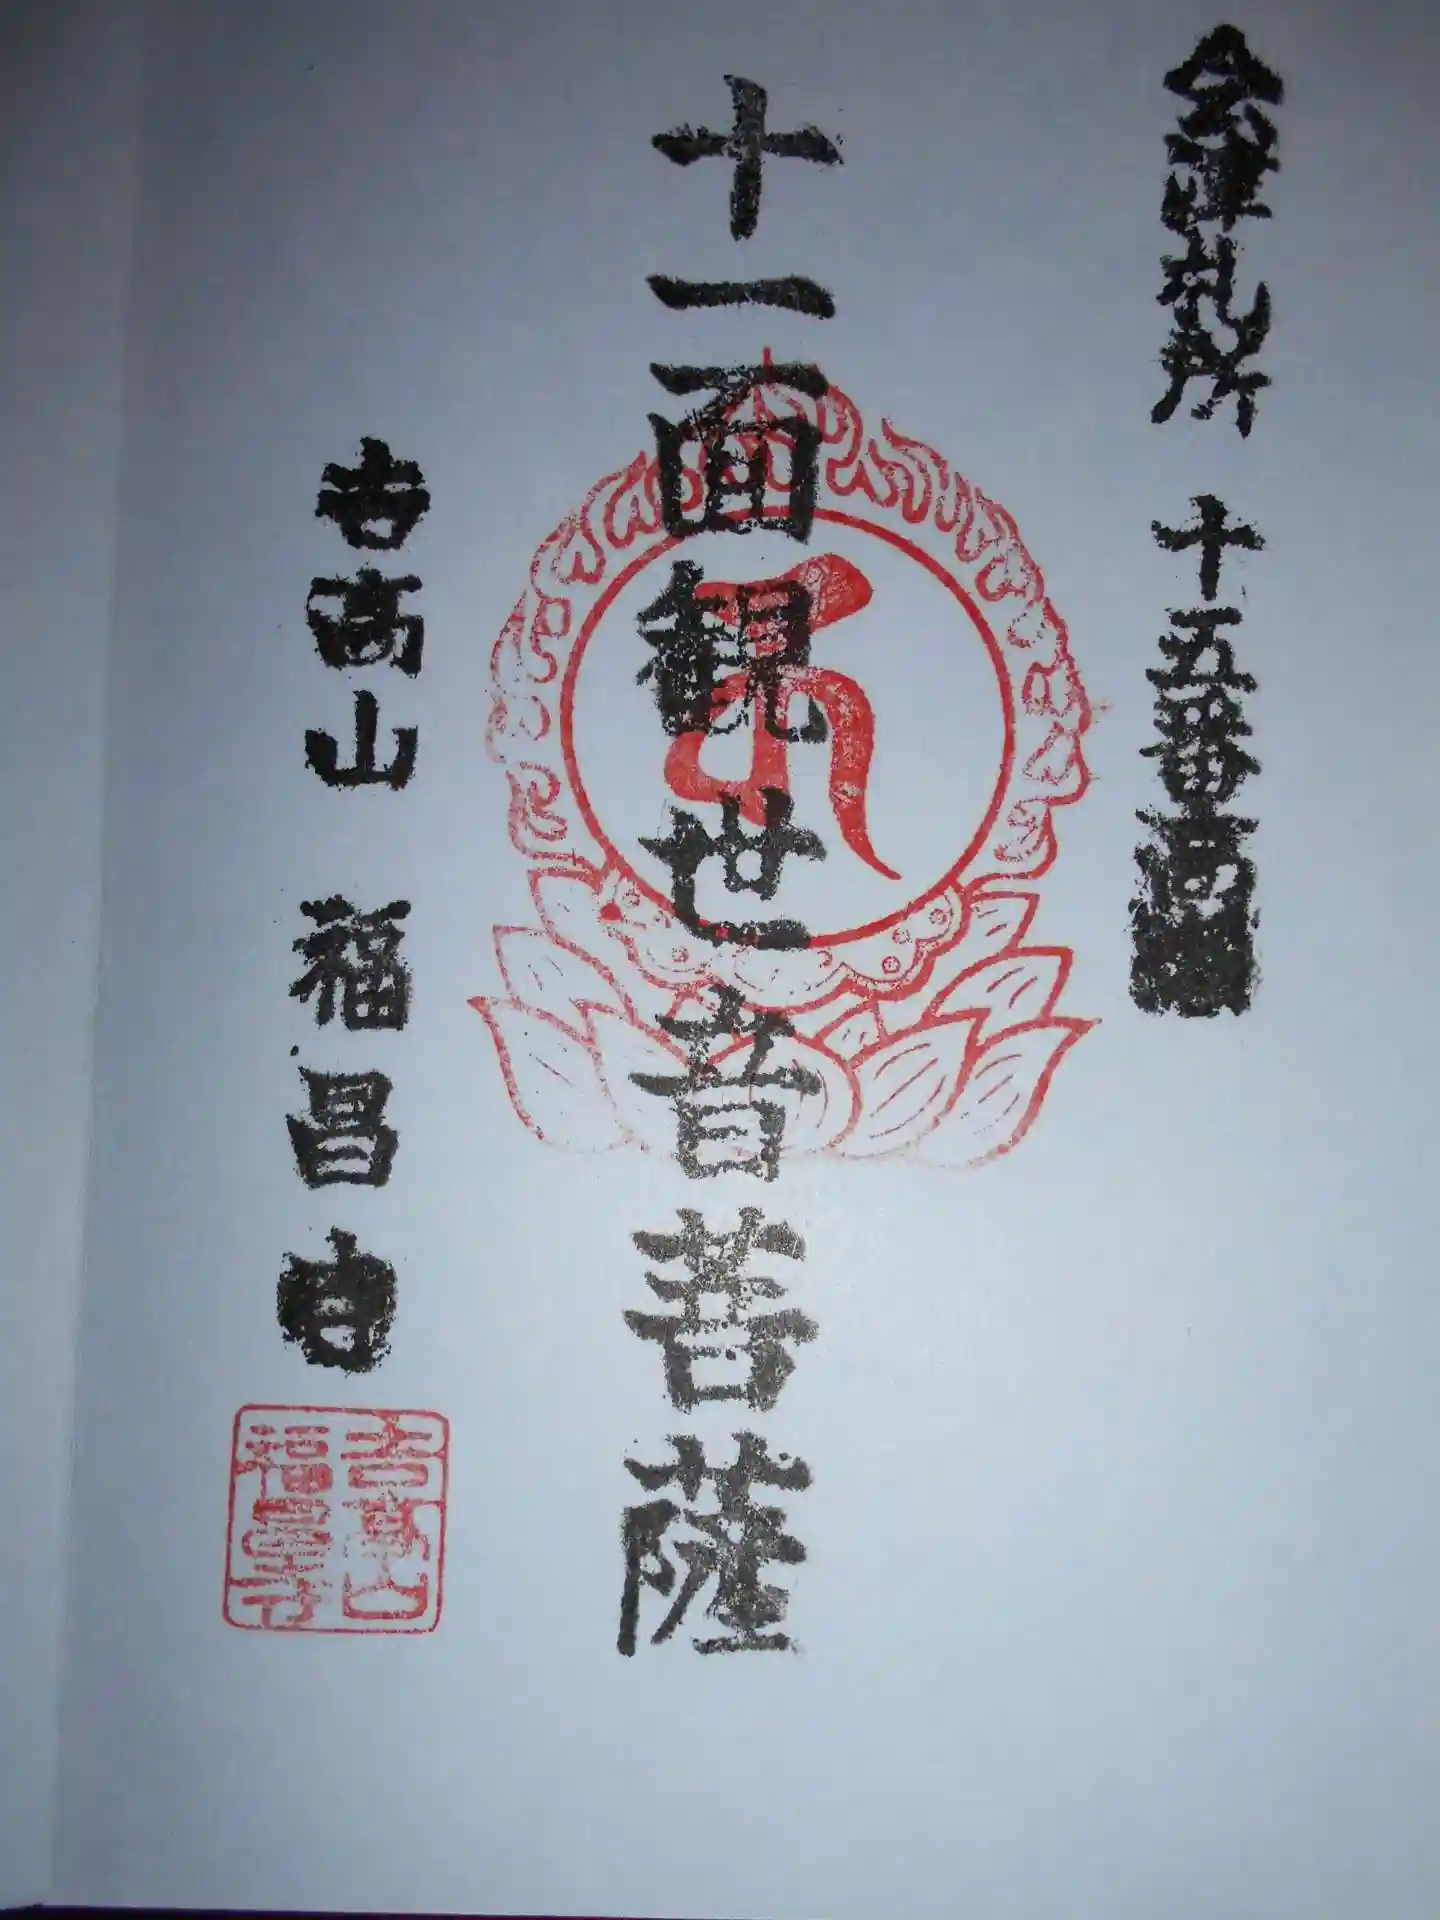 会津札所 十五番高
十一面観世音菩薩
吉高山 福昌寺
吉高山
福昌寺